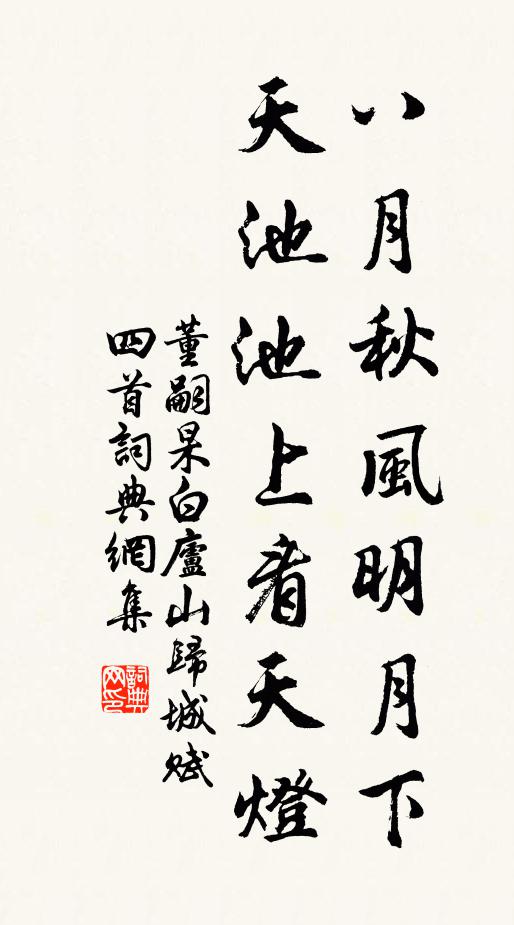 八月秋風明月下
天池池上看天燈
董嗣杲白廬山歸城賦
四首詞典網集
詞典網印